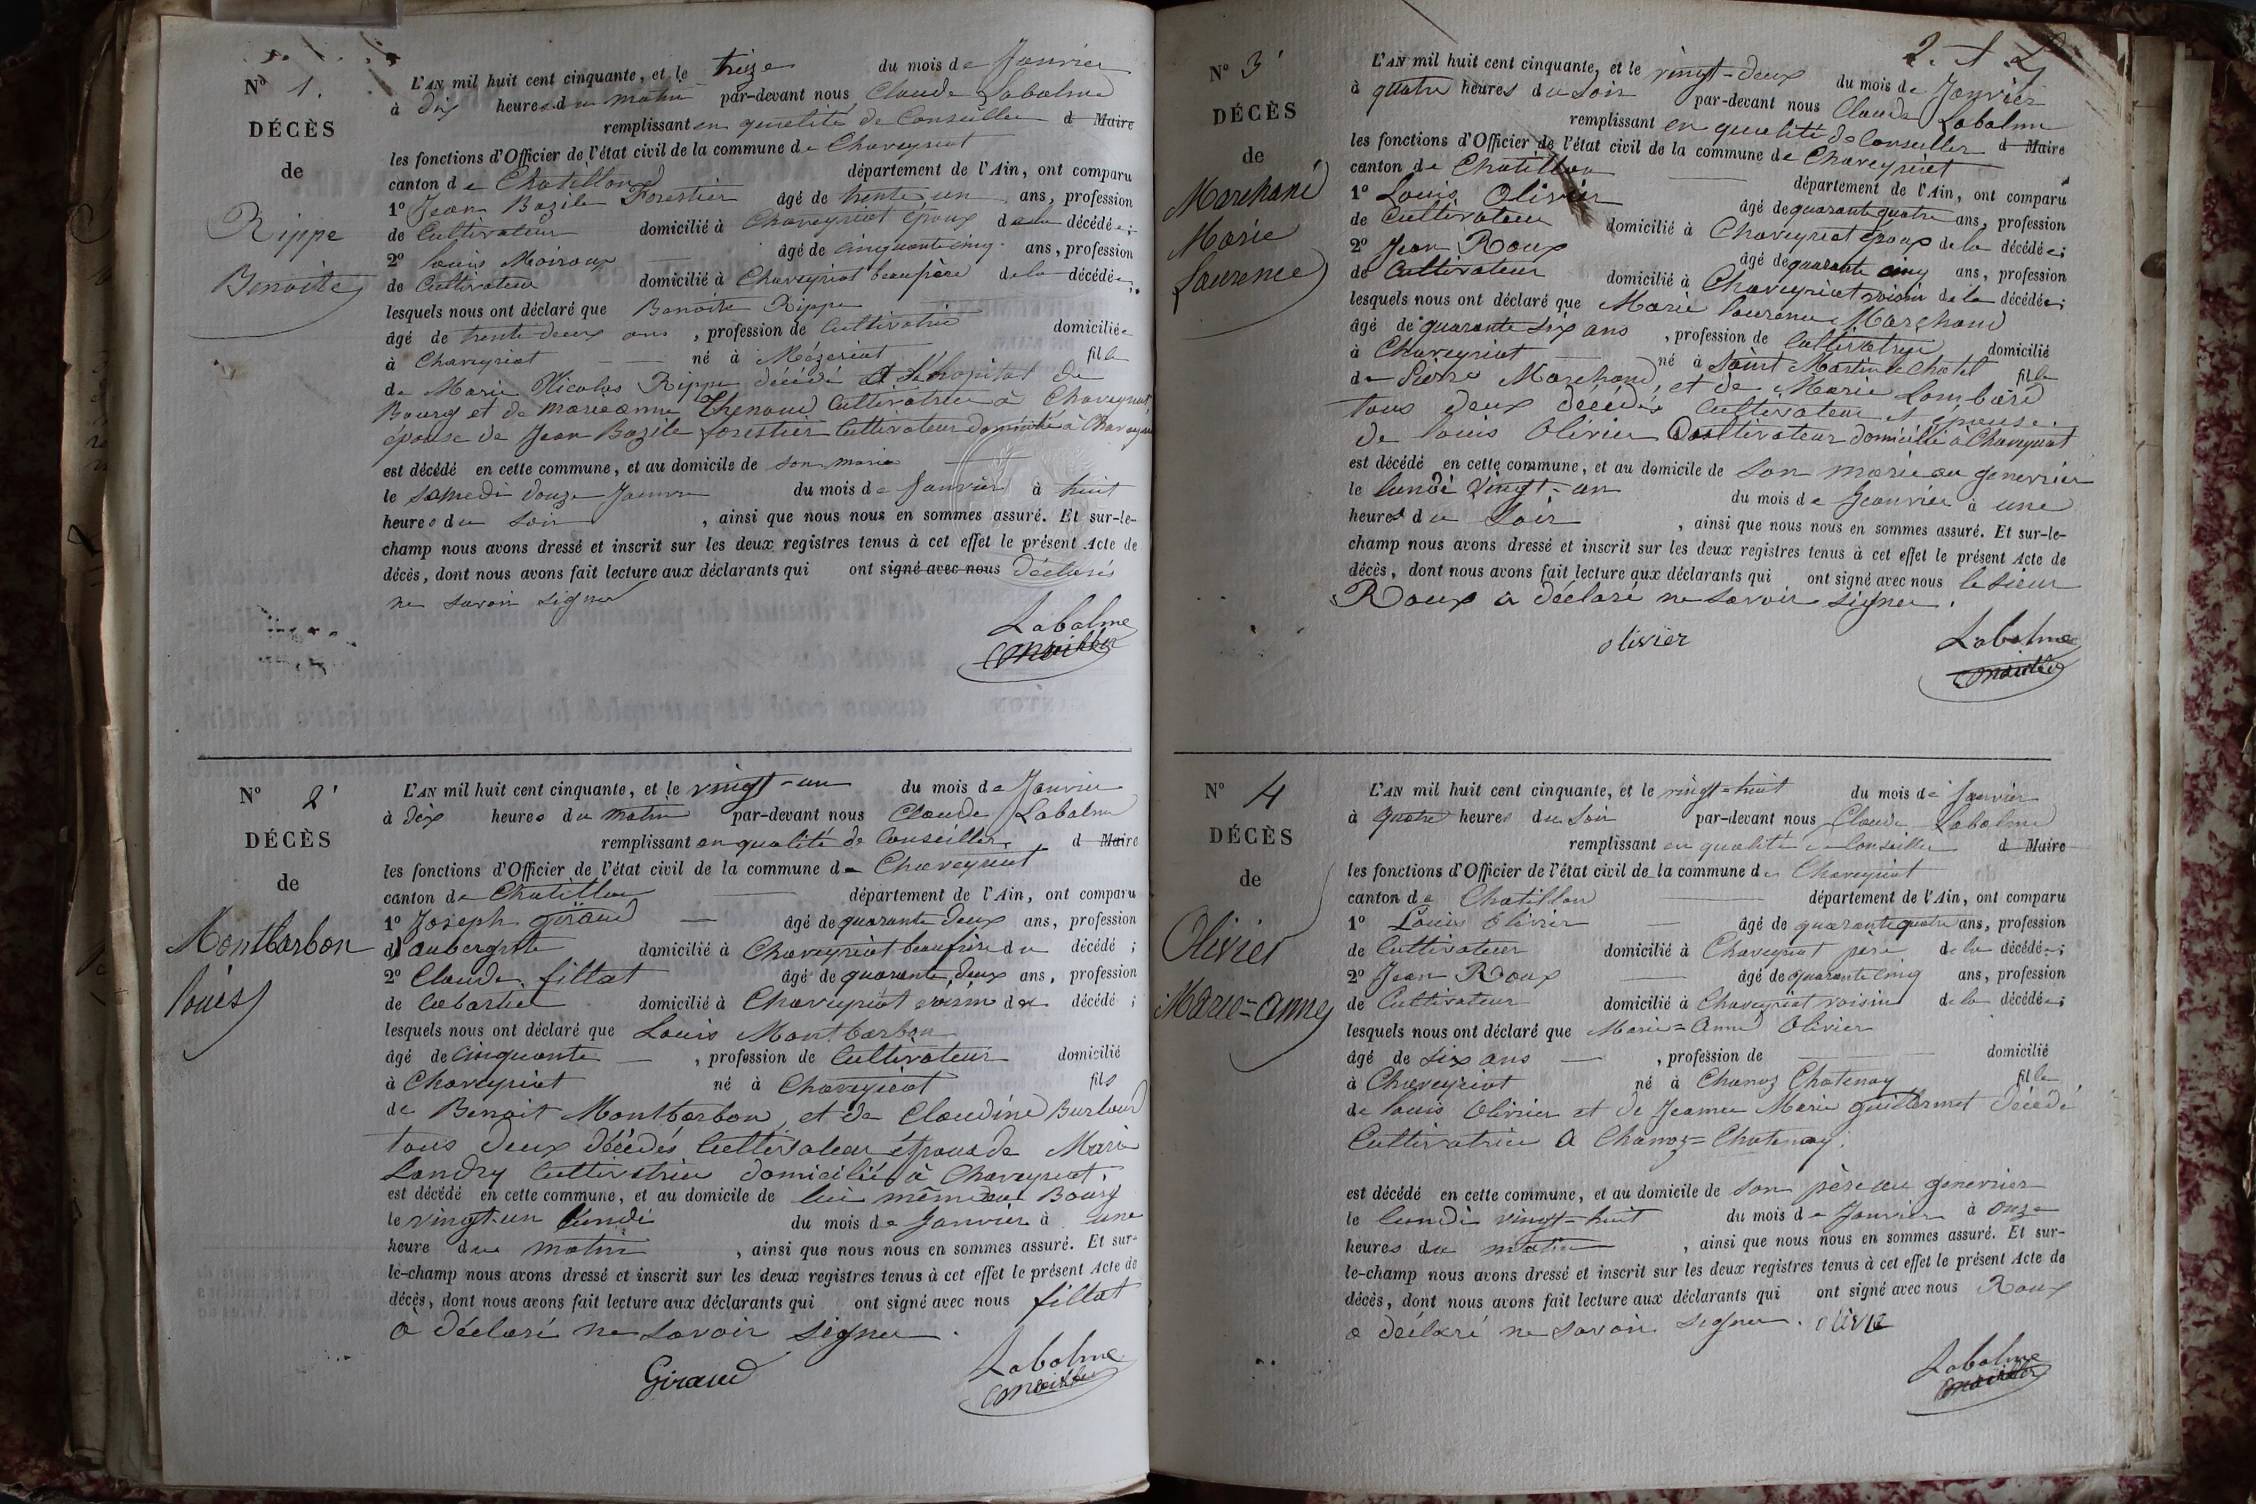 N° 1.
DÉCÈS
de
Rippe
Benoite
L'AN mil huit cent cinquante, et le treize du mois de Janvier
à dix heures du matin par-devant nous Claude Labalme
remplissant en qualité de Conseiller d Maire
les fonctions d'Officier de l'état civil de la commune de Chaveyriat
canton de Chatillon département de l'Ain, ont comparu
1° Jean Bazile Forestier âgé de trente un ans, profession
de Cultivateur domicilié à Chaveyriat époux de la décédée;
2° louis Moiroux âgé de cinquante cinq ans, profession
de Cultivateur domicilié à Chaveyriat beaufrère de la décédée;
lesquels nous ont déclaré que Benoite Rippe
âgé de trente deux ans, profession de Cultivatrice domiciliée
à Chaveyriat né à Mézeriat fille
de Marie Nicolas Rippe décédé à l'hopital de
Bourg et de marieanne Thenoud Cultivatrice à Chaveyriat,
épouse de Jean Bazile forestier Cultivateur domicilié à Chaveyriat
est décédé en cette commune, et au domicile de son marie
le samedi douze Janvier du mois de Janvier à huit
heures du soir, ainsi que nous nous en sommes assuré. Et sur-le-
champ nous avons dressé et inscrit sur les deux registres tenus à cet effet le présent Acte de
décès, dont nous avons fait lecture aux déclarants qui ont signé avec nous déclarés
ne savoir signer
Labalme
Conseiller
N° 2
DÉCÈS
de
Montbarbon
louis
L'AN mil huit cent cinquante, et le vingt-un du mois de Janvier
à dix heures du matin par-devant nous Claude Labalme
remplissant en qualité de Conseiller d Maire
les fonctions d'Officier de l'état civil de la commune de Chaveyriat
canton de Chatillon département de l'Ain, ont comparu
1° Joseph giraud âgé de quarante deux ans, profession
d'aubergiste domicilié à Chaveyriat beaufrère du décédé;
2° Claude fillat âgé de quarante deux ans, profession
de Cabartier domicilié à Chaveyriat voisin du décédé;
lesquels nous ont déclaré que Louis Montbarbon
âgé de Cinquante, profession de Cultivateur domicilié
à Chaveyriat né à Chaveyriat fils
de Benoit Montbarbon, et de Claudine
tous deux décédés Cultivateur époux de Marie
Landry Cultivatrice domiciliée à Chaveyriat.
est décédé en cette commune, et au domicile de lui même au Bourg
le vingt-un lundi du mois de Janvier à une
heure du matin, ainsi que nous nous en sommes assuré. Et sur-
le-champ nous avons dressé et inscrit sur les deux registres tenus à cet effet le présent Acte de
décès, dont nous avons fait lecture aux déclarants qui ont signé avec nous fillat
a déclaré ne savoir signer.
Giraud
Labalme
Conseiller
N° 3
DÉCÈS
de
Marchand
Marie
Laurence
L'AN mil huit cent cinquante, et le vingt-deux du mois de Janvier
à quatre heures du soir par-devant nous Claude Labalme
remplissant en qualité de Conseiller d Maire
les fonctions d'Officier de l'état civil de la commune de Chaveyriat
canton de Chatillon département de l'Ain, ont comparu
1° Louis Olivier âgé de quarante quatre ans, profession
de Cultivateur domicilié à Chaveyriat époux de la décédée;
2° Jean Roux âgé de quarante cinq ans, profession
de Cultivateur domicilié à Chaveyriat voisin de la décédée;
lesquels nous ont déclaré que Marie laurence Marchand
âgé de quarante six ans, profession de Cultivatrice domicilié
à Chaveyriat né à Saint Martin le Chatel fille
de Pierre Marchand, et de Marie Lombard
tous deux décédés Cultivateur et épouse
de louis Olivier Cultivateur domicilié à Chaveyriat
est décédé en cette commune, et au domicile de son marie au genevrier
le lundi vingt-un du mois de Janvier à une
heures du soir, ainsi que nous nous en sommes assuré. Et sur-le-
champ nous avons dressé et inscrit sur les deux registres tenus à cet effet le présent Acte de
décès, dont nous avons fait lecture aux déclarants qui ont signé avec nous le sieur
Roux a déclaré ne savoir signer.
olivier
Labalme
Conseiller
N° 4
DÉCÈS
de
Olivier
Marie-anne
L'AN mil huit cent cinquante, et le vingt-huit du mois de Janvier
à quatre heures du soir par-devant nous Claude Labalme
remplissant en qualité de Conseiller d Maire
les fonctions d'Officier de l'état civil de la commune de Chaveyriat
canton de Chatillon département de l'Ain, ont comparu
1° Louis olivier âgé de quarante quatre ans, profession
de Cultivateur domicilié à Chaveyriat père de la décédée;
2° Jean Roux âgé de quarante cinq ans, profession
de Cultivateur domicilié à Chaveyriat voisin de la décédée;
lesquels nous ont déclaré que Marie=anne Olivier
âgé de six ans, profession de domicilié
à Chaveyriat né à Chanoz Chatenay fille
de louis Olivier et de Jeanne Marie guillermet décédé
Cultivatrice à Chanoz=Chatenay.
est décédé en cette commune, et au domicile de son père au genevrier
le lundi vingt=huit du mois de Janvier à onze
heures du matin, ainsi que nous nous en sommes assuré. Et sur-
le-champ nous avons dressé et inscrit sur les deux registres tenus à cet effet le présent Acte de
décès, dont nous avons fait lecture aux déclarants qui ont signé avec nous Roux
a déclaré ne savoir signer.
Labalme
Conseiller